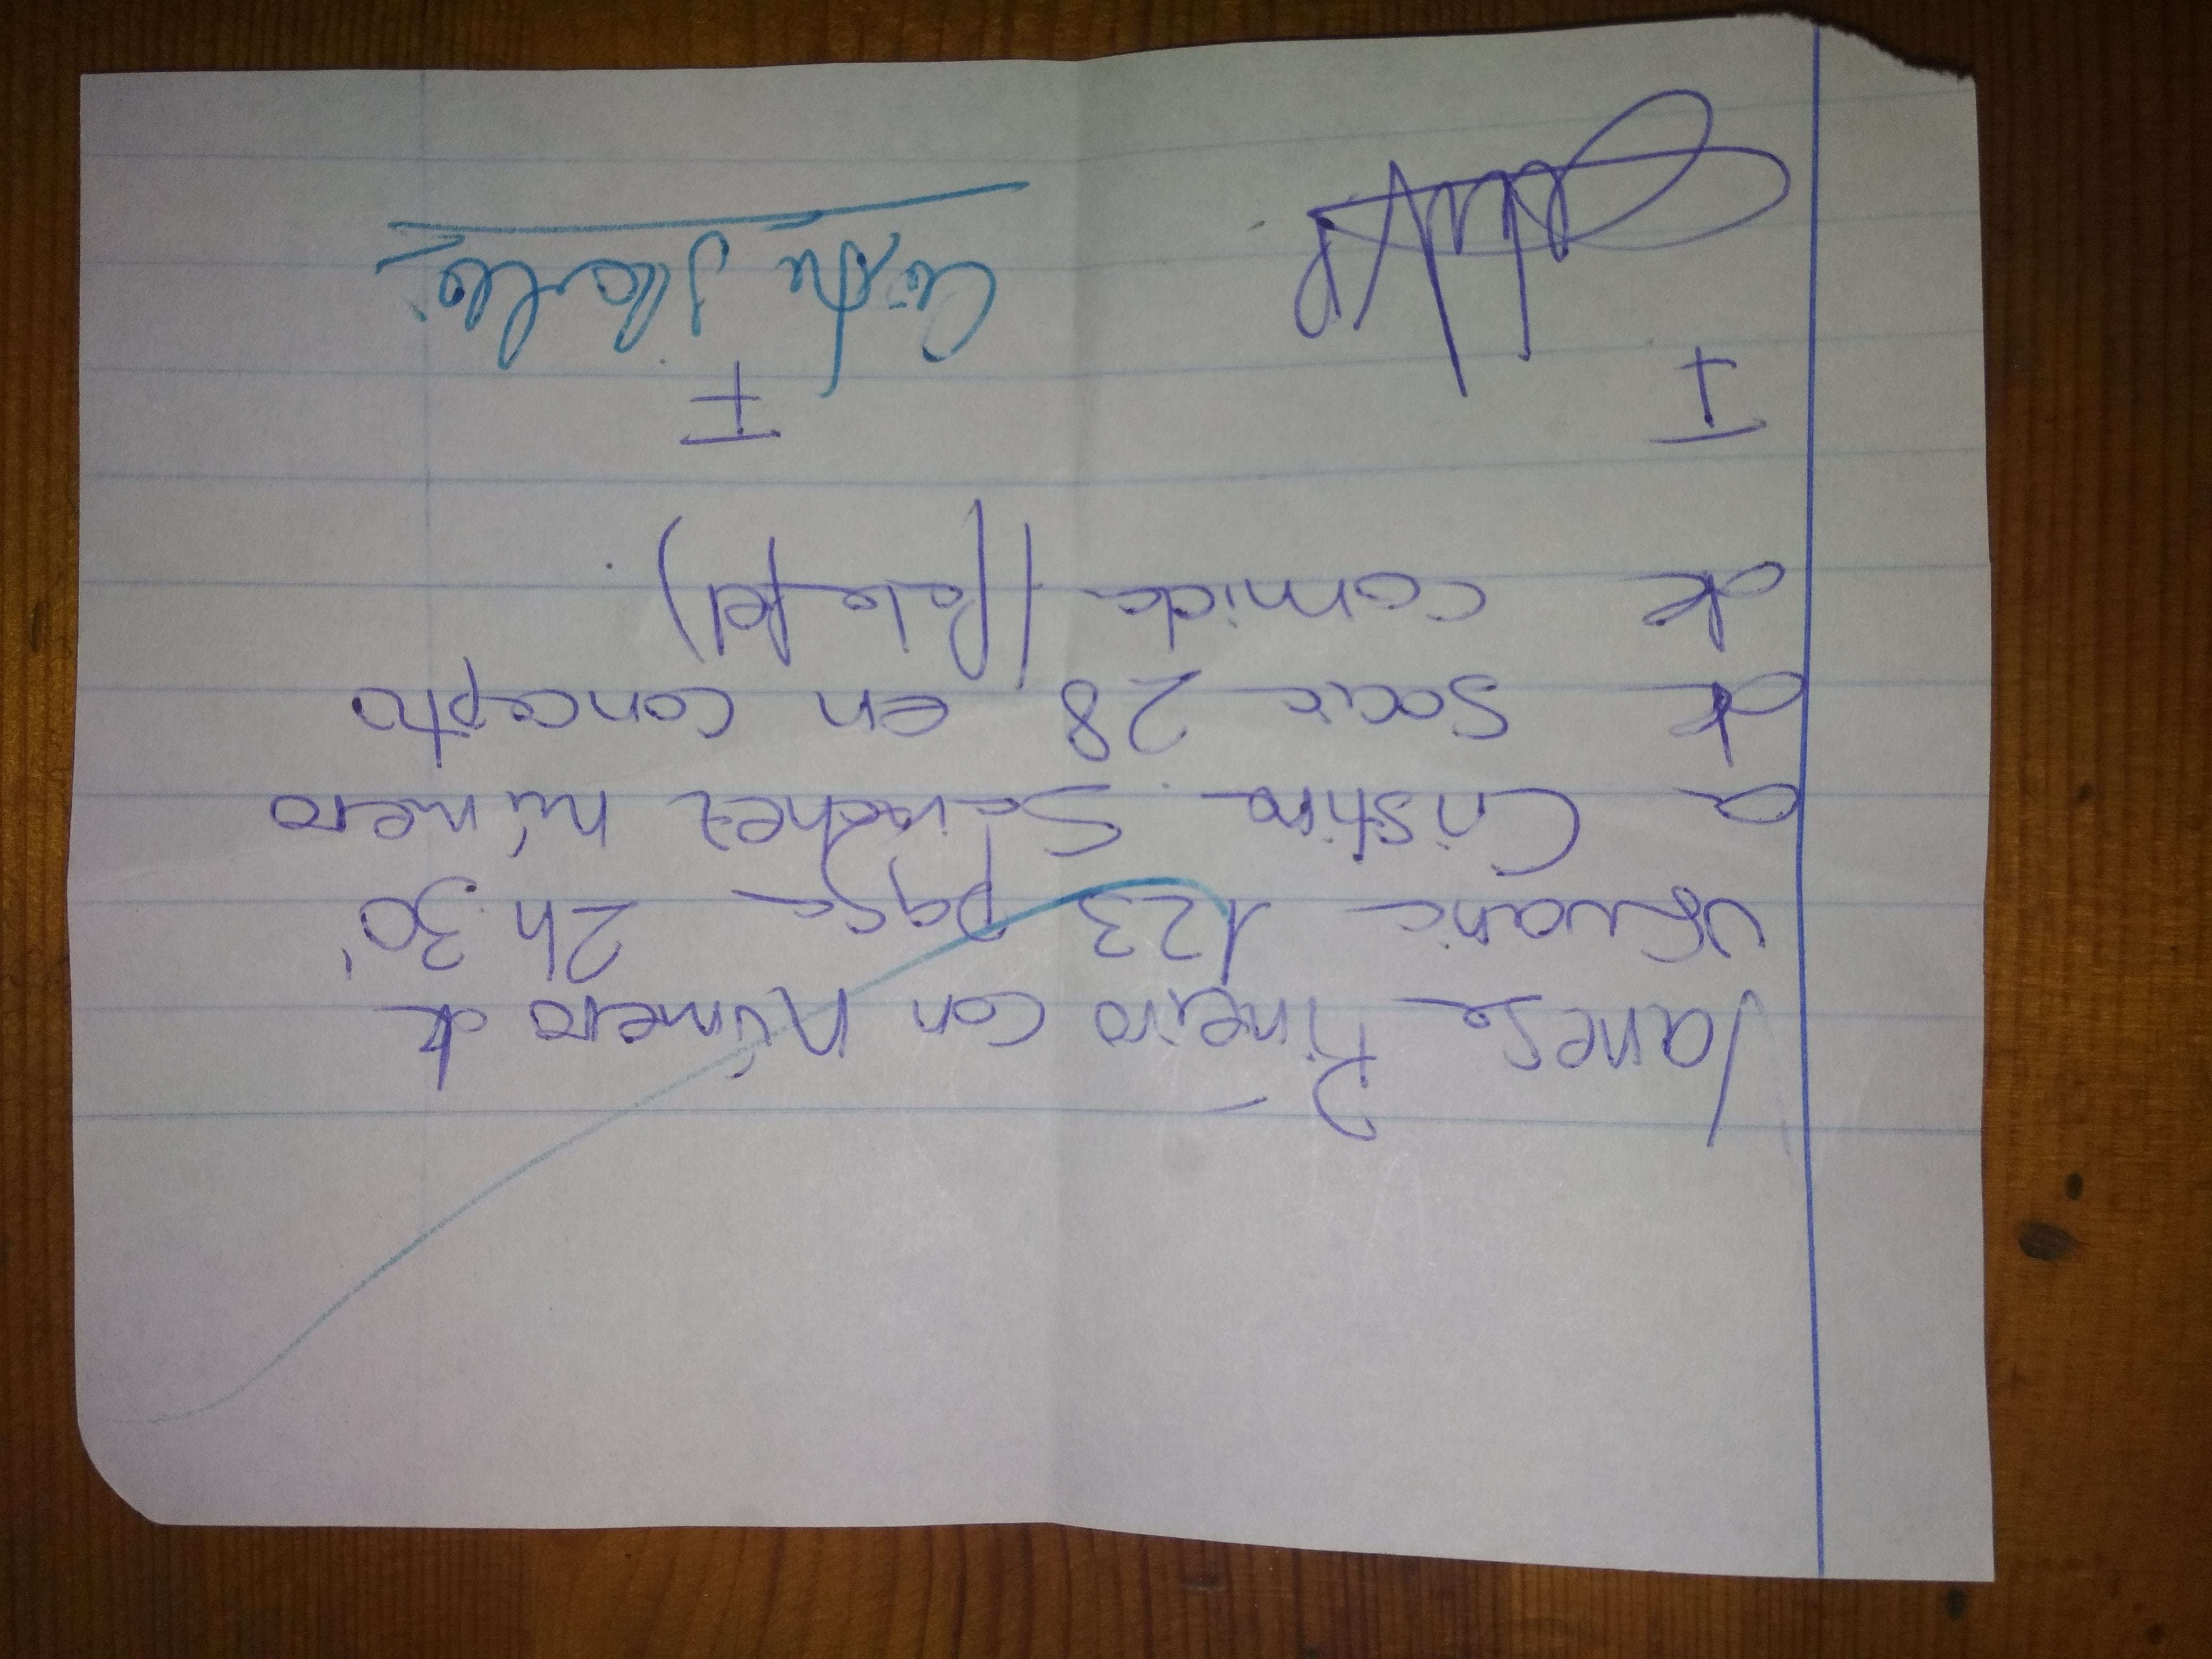 Vanesa Piñeiro con número de
usuaria 123 paga 2h.30'
a Cristina Sánchez número
de socia 28 en concepto
de comida (falafel).
F F